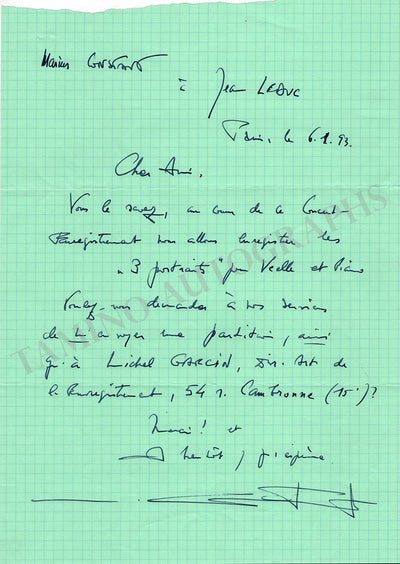 Marius Constant
à
Jean Leduc
Paris, le 6.1.93.
Cher Ami,
Vous le savez, au cours de ce Concert-
Enregistrement nous allons enregistrer les
"3 portraits" pour Vcelle et Piano
Voulez-vous demander à vos services
de m'envoyer une partition, ainsi
qu'à Michel GARCIN, Dir. Art. de
l'Enregistrement, 54 r. Cambronne (15e)?
Merci! et
A bientôt, j'espère
TAMINO AUTOGRAPHS